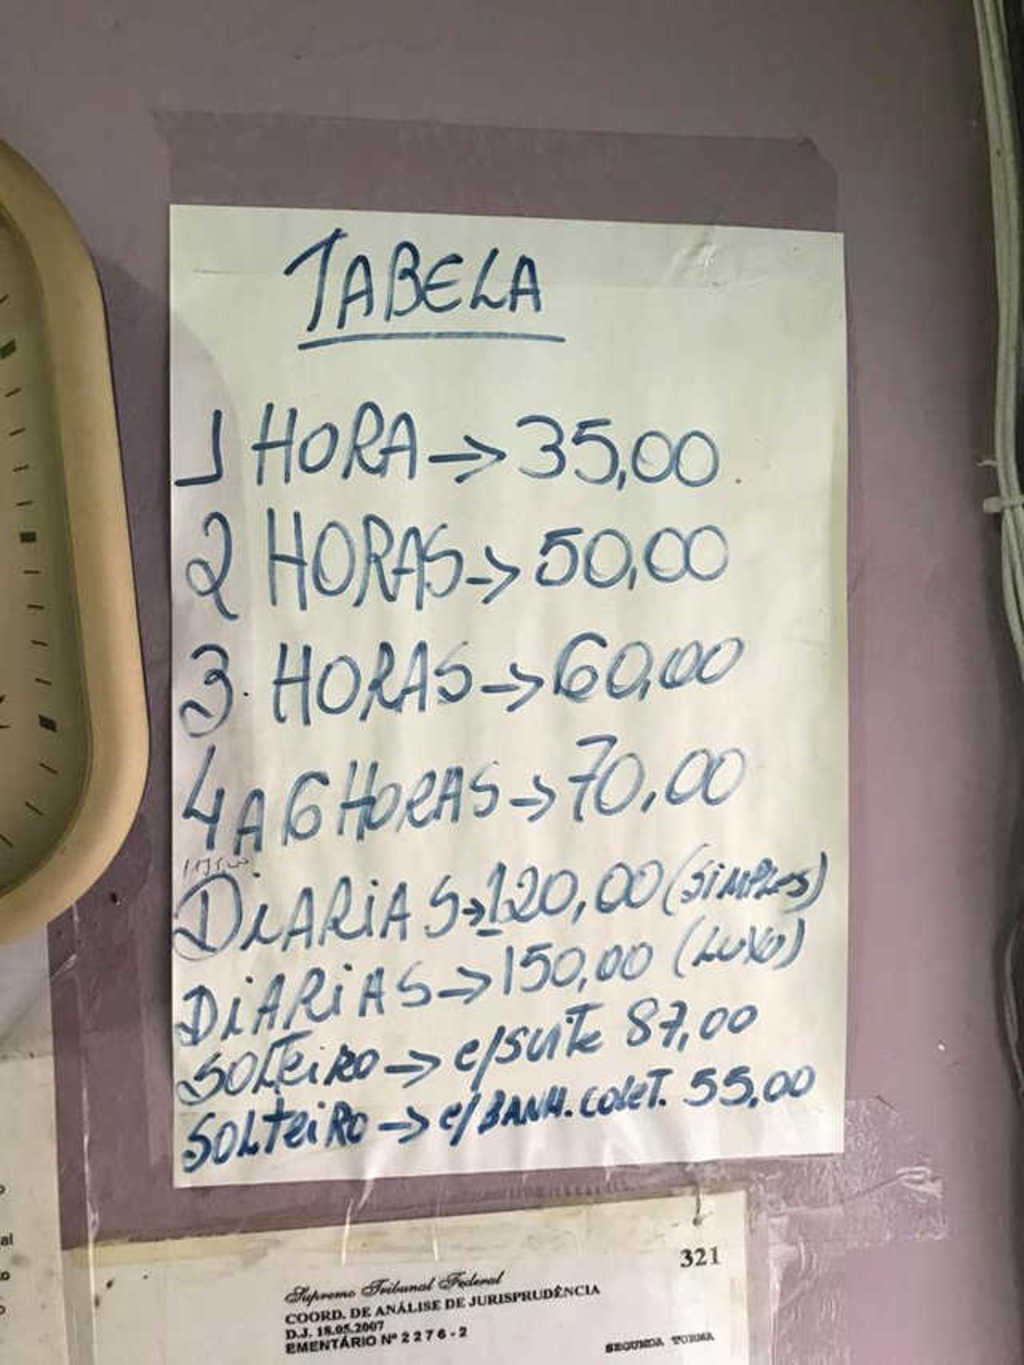 TABELA
1 HORA → 35,00
2 HORAS → 50,00
3 HORAS → 60,00
4 A 6 HORAS → 70,00
DIARIAS → 120,00 (SIMPLES)
DIARIAS → 150,00 (LUXO)
SOLTEIRO → c/SUITE 87,00
SOLTEIRO → c/BANH. COLET. 55,00
321
Supremo Tribunal Federal
COORD. DE ANÁLISE DE JURISPRUDÊNCIA
D.J. 18.05.2007
EMENTÁRIO Nº 2 2 7 6 - 2
SEGUNDA TURMA
al